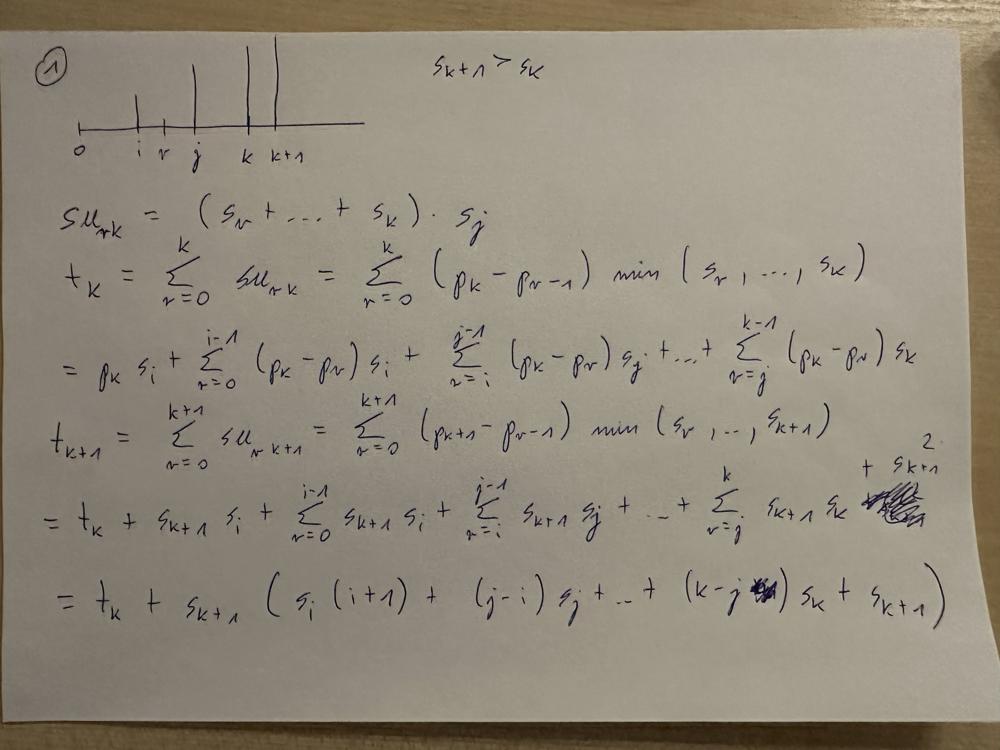 ① s_{k+1} > s_k
0 i r j k k+1
su_{rk} = (s_r + ... + s_k) · s_j
t_k = ∑_{r=0}^{k} su_{rk} = ∑_{r=0}^{k} (p_k - p_{r-1}) min (s_r, ..., s_k)
= p_k s_i + ∑_{r=0}^{i-1} (p_k - p_r) s_i + ∑_{r=i}^{j-1} (p_k - p_r) s_j + ... + ∑_{r=j}^{k-1} (p_k - p_r) s_k
t_{k+1} = ∑_{r=0}^{k+1} su_{r k+1} = ∑_{r=0}^{k+1} (p_{k+1} - p_{r-1}) min (s_r, .., s_{k+1})
= t_k + s_{k+1} s_i + ∑_{r=0}^{i-1} s_{k+1} s_i + ∑_{r=i}^{j-1} s_{k+1} s_j + ... + ∑_{r=j}^{k} s_{k+1} s_k + s_{k+1}^2
= t_k + s_{k+1} (s_i (i+1) + (j-i) s_j + .. + (k-j) s_k + s_{k+1})